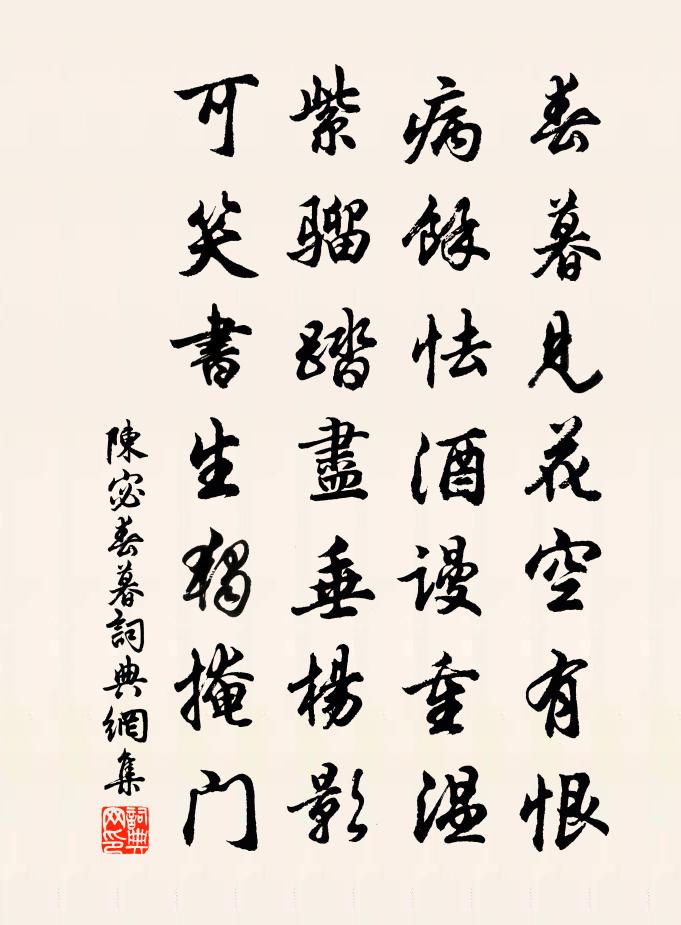 春暮見花空有恨
病餘怯酒謾重温
紫騮踏盡垂楊影
可笑書生獨掩门
陳宓春暮詞典網集
詞典網印